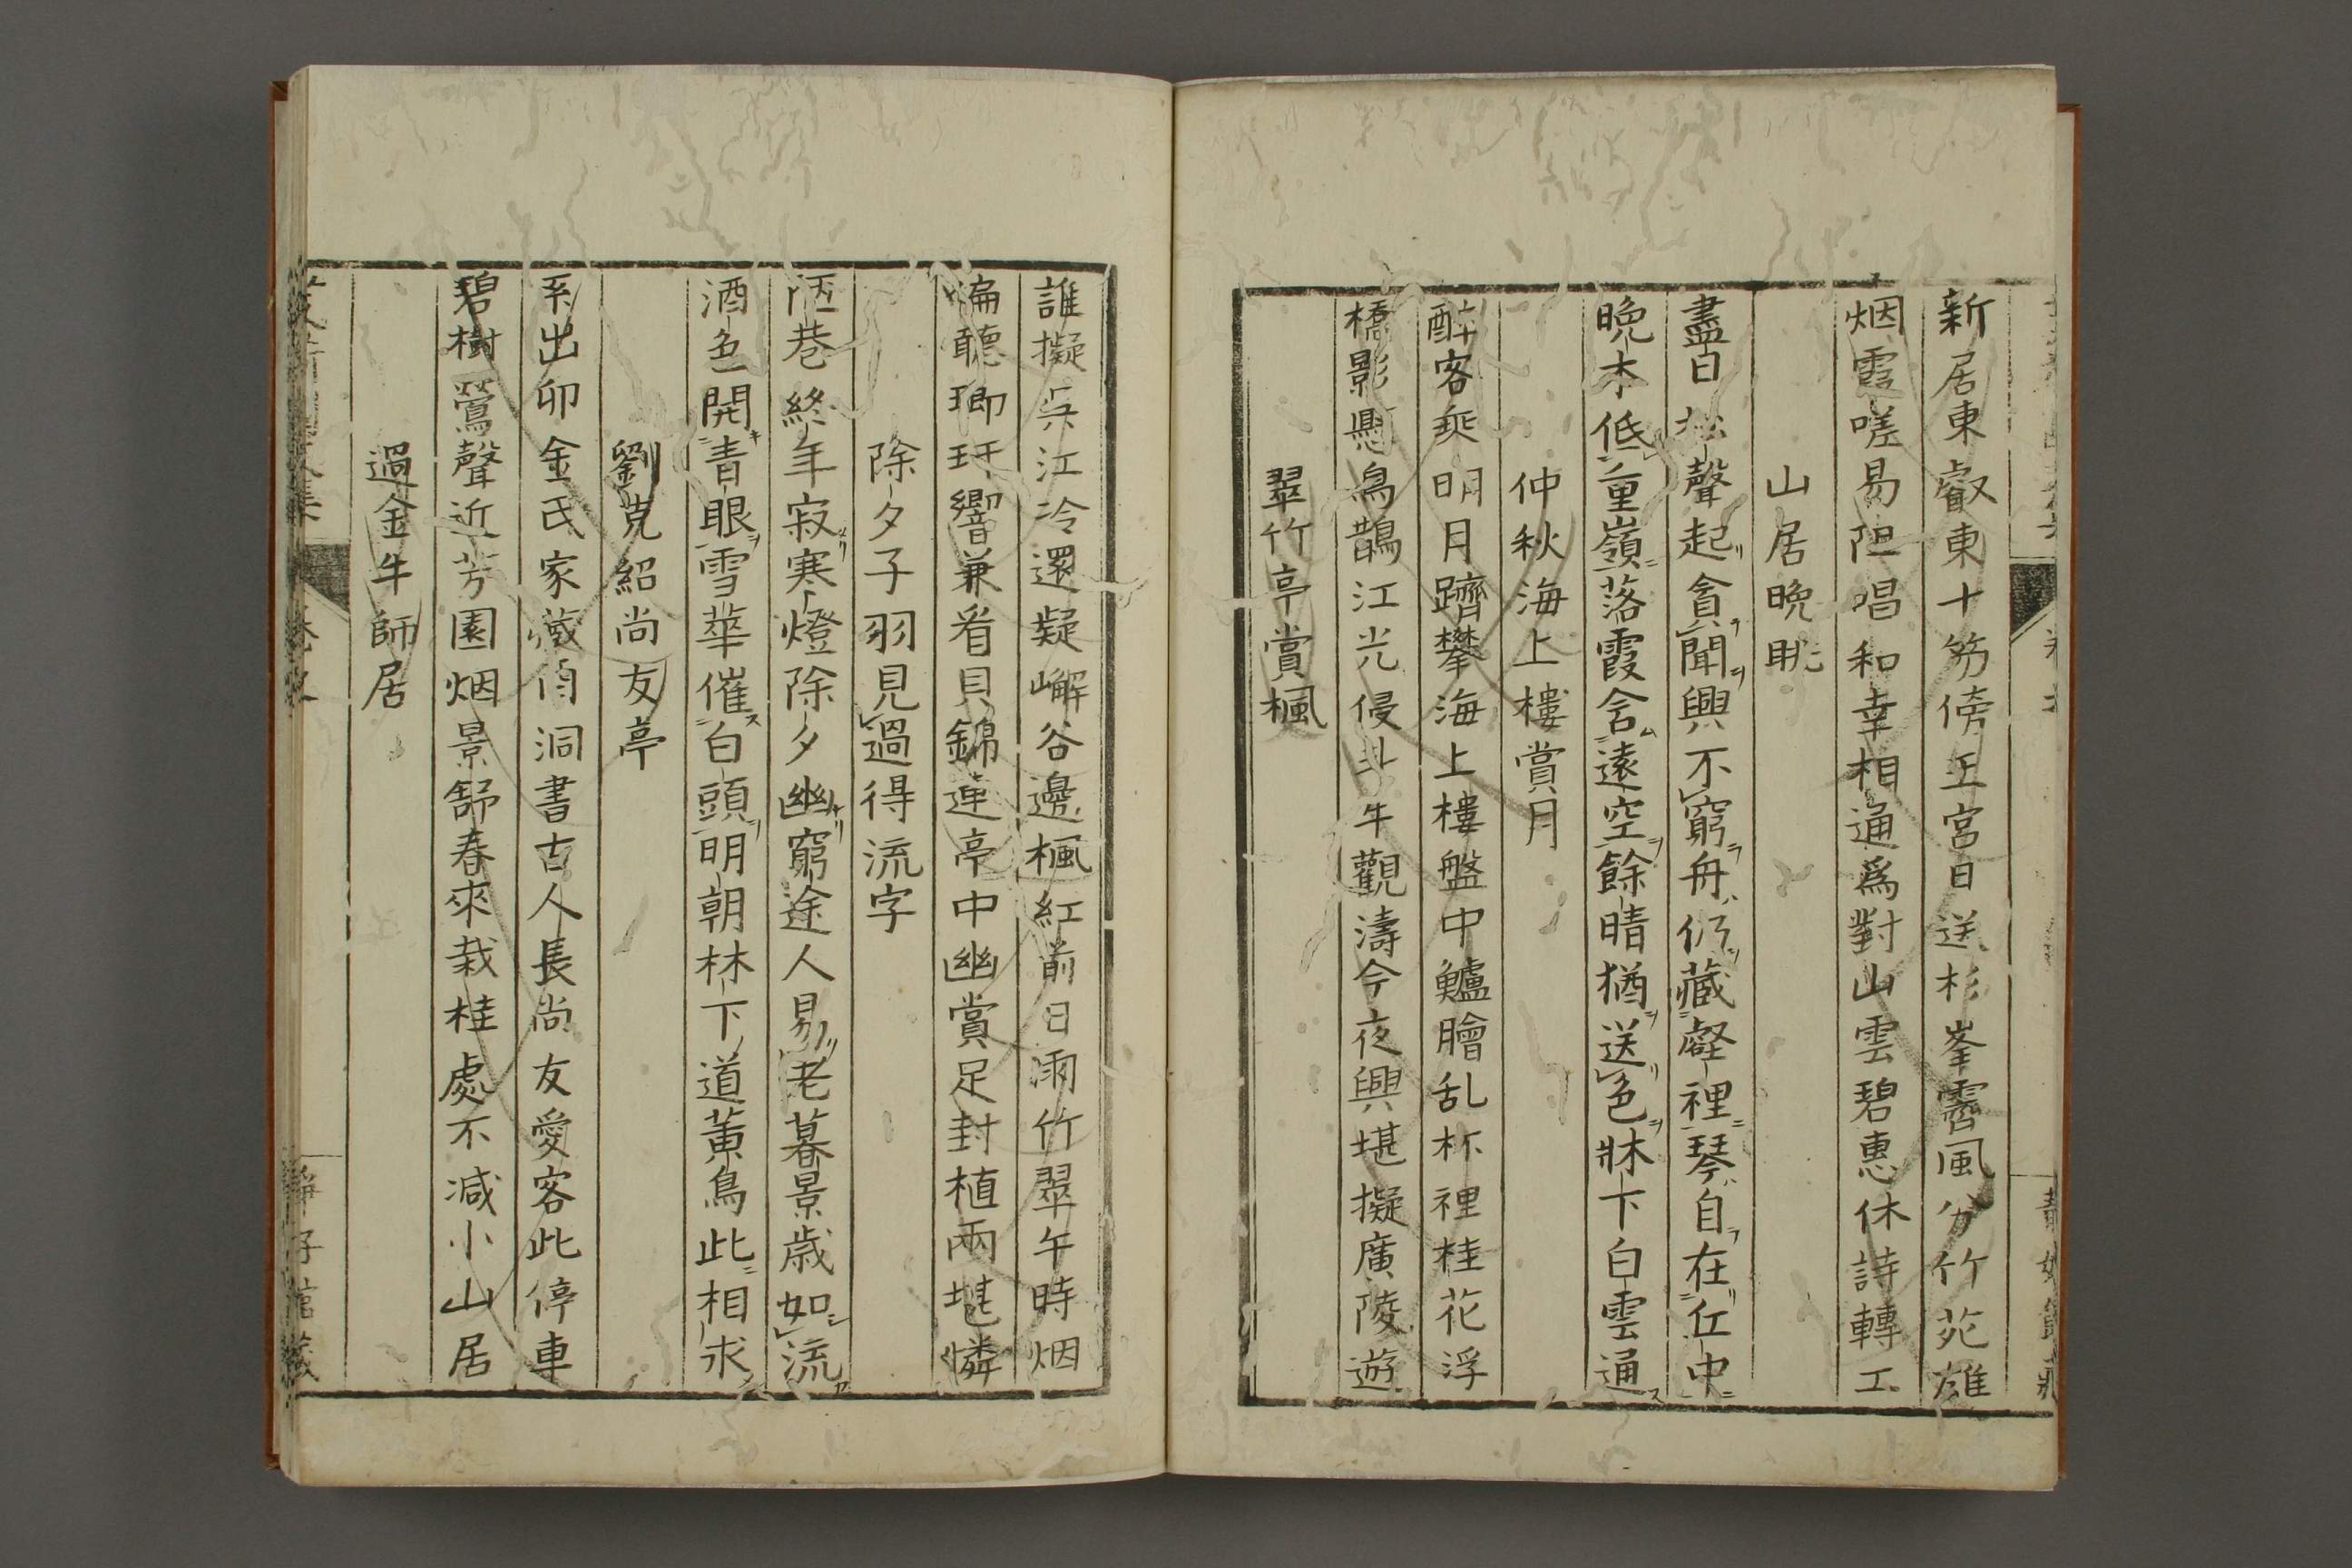 新居東叡東十笏傍王宮日送杉峯霽風分竹苑雄
烟霞嗟易阻唱和幸相通爲對山雲碧惠休詩轉工
山居晩眺
盡日松聲起貪聞興不窮舟仍藏壑裡琴自在丘中
晩木低重嶺落霞含遠空餘晴猶送色牀下白雲通
仲秋海上樓賞月
酔客乘明月躋攀海上樓盤中鱸膾乱杯裡桂花浮
橋影懸烏鵲江光侵斗牛觀濤今夜興堪擬廣陵遊
翠竹亭賞楓
誰擬吳江冷還疑嶰谷邊楓紅前日雨竹翠午時烟
偏聽琅玕響兼看貝錦連亭中幽賞足封植兩堪憐
除夕子羽見過得流字
陋巷終年寂寒燈除夕幽窮途人易老暮景歲如流
酒色開青眼雪華催白頭明朝林下道黃鳥此相求
劉克紹尚友亭
系出卯金氏家藏酉洞書古人長尚友愛客此停車
碧樹鶯聲近芳園烟景舒春來栽桂處不減小山居
過金牛師居